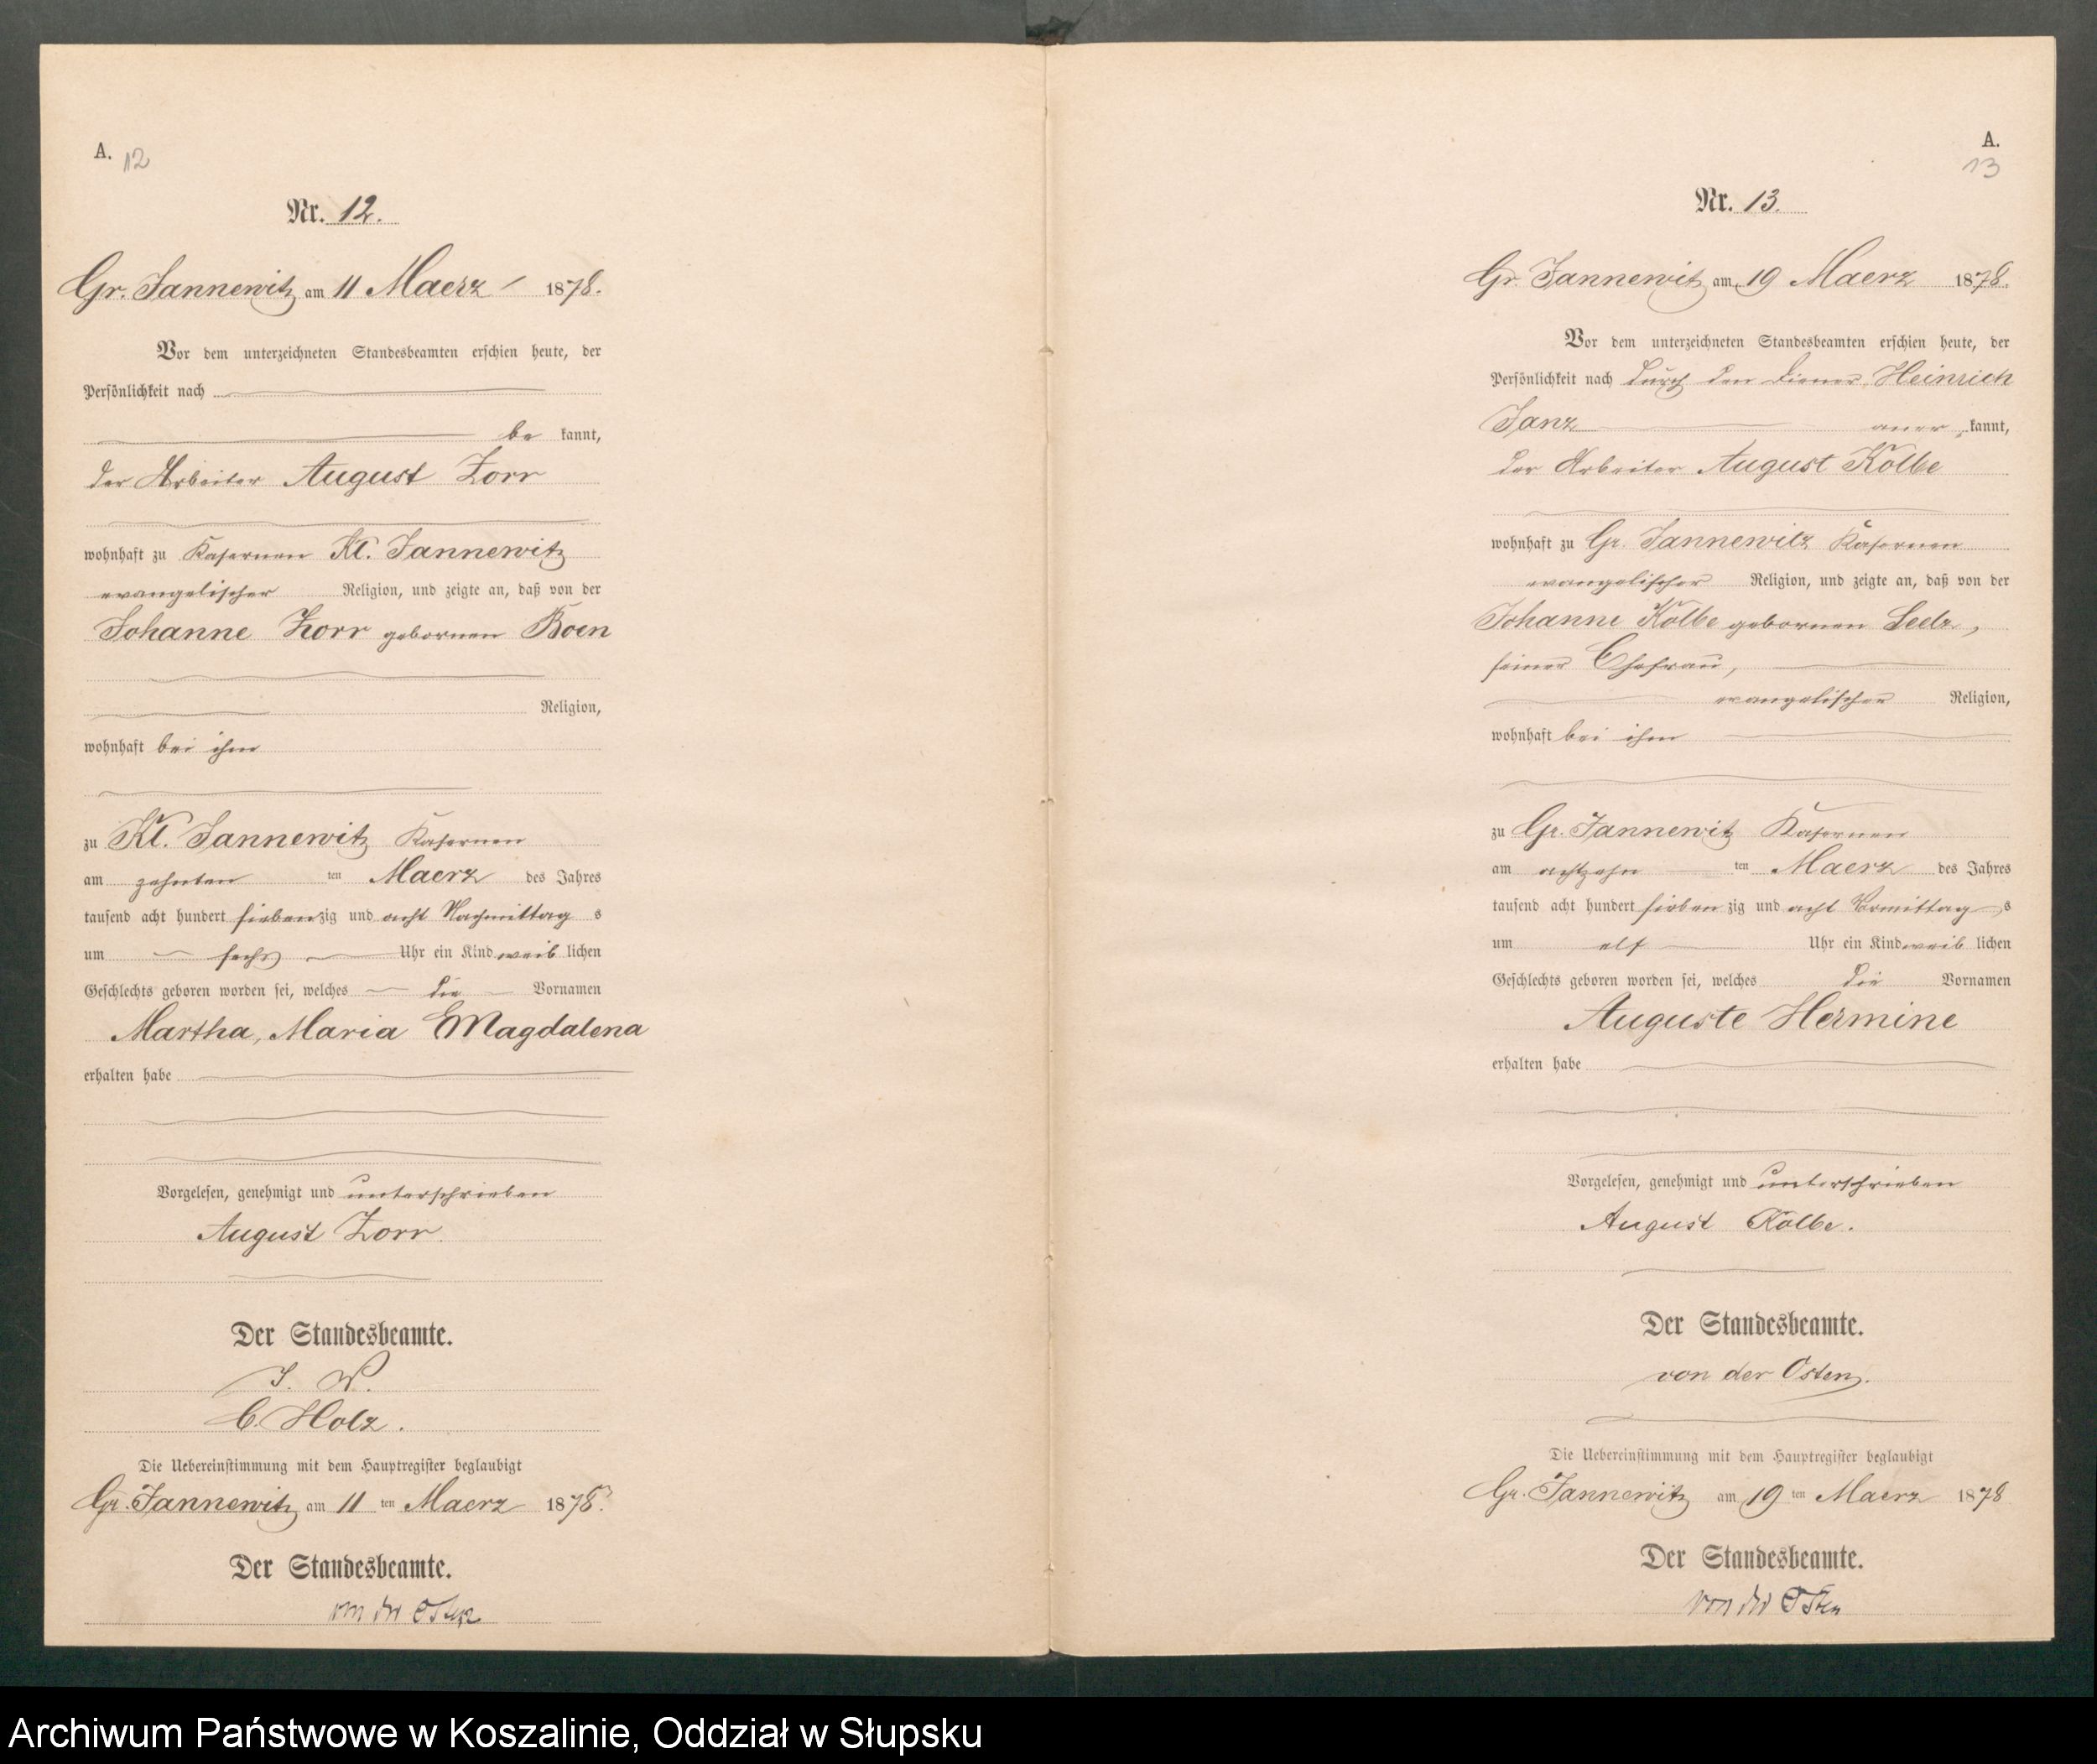 A. 12
Nr. 12.
Gr. Jannewitz am 11 Maerz 1878.
Vor dem unterzeichneten Standesbeamten erschien heute, der
Persönlichkeit nach
be kannt,
der Arbeiter August Zorr
wohnhaft zu Kasernen Kl. Jannewitz
evangelischer Religion, und zeigte an, daß von der
Johanne Zorr gebornen Boen
Religion,
wohnhaft bei ihm
zu Kl. Jannewitz Kasernen
am zehnten ten Maerz des Jahres
tausend acht hundert siebenzig und acht Nachmittag s
um sechs Uhr ein Kind weib lichen
Geschlechts geboren worden sei, welches die Vornamen
Martha, Maria Magdalena
erhalten habe
Vorgelesen, genehmigt und unterschrieben
August Zorr.
Der Standesbeamte.
J. V.
C. Holz.
Die Uebereinstimmung mit dem Hauptregister beglaubigt
Gr. Jannewitz am 11 ten Maerz 1878.
Der Standesbeamte.
von der Osten
A.
13
Nr. 13.
Gr. Jannewitz am 19 Maerz 1878.
Vor dem unterzeichneten Standesbeamten erschien heute, der
Persönlichkeit nach durch den Diener Heinrich
Janz aner kannt,
der Arbeiter August Kolbe
wohnhaft zu Gr. Jannewitz Kasernen
evangelischer Religion, und zeigte an, daß von der
Johanne Kolbe gebornen Seelz,
seiner Ehefrau,
evangelischer Religion,
wohnhaft bei ihm
zu Gr. Jannewitz Kasernen
am achtzehn ten Maerz des Jahres
tausend acht hundert sieben zig und acht Vormittag s
um elf Uhr ein Kind weib lichen
Geschlechts geboren worden sei, welches die Vornamen
Auguste Hermine
erhalten habe
Vorgelesen, genehmigt und unterschrieben
August Kolbe.
Der Standesbeamte.
von der Osten.
Die Uebereinstimmung mit dem Hauptregister beglaubigt
Gr. Jannewitz am 19 ten Maerz 1878
Der Standesbeamte.
von der Osten
Archiwum Państwowe w Koszalinie, Oddział w Słupsku